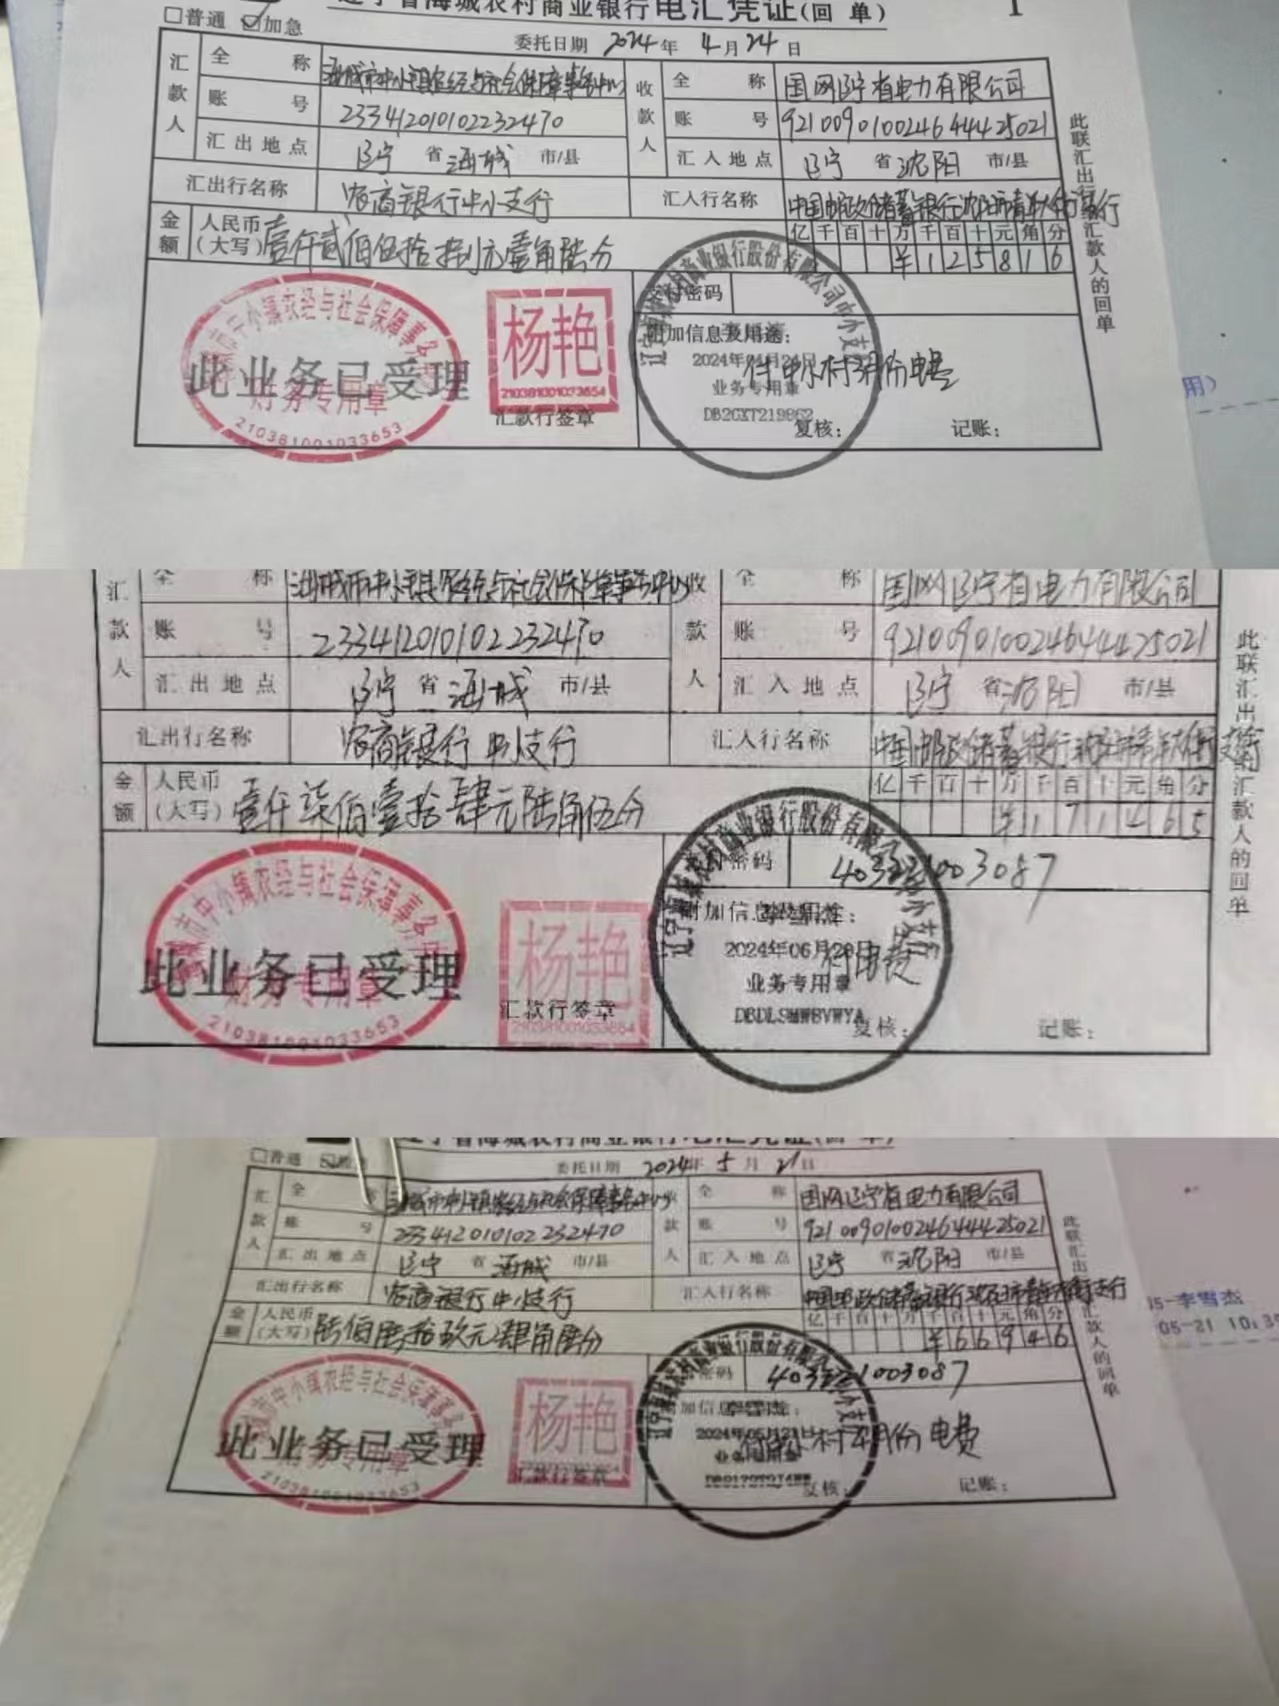 辽宁省海城农村商业银行电汇凭证(回 单) 1
□普通 ☑加急
委托日期 2024 年 4 月 24 日
汇款人 全称 海城市中小镇农经与社会保障事务中心 收款人 全称 国网辽宁省电力有限公司
账号 233412010102232470 账号 9210090100246444425021
汇出地点 辽宁 省 海城 市/县 汇入地点 辽宁 省 沈阳 市/县
汇出行名称 农商银行中小支行 汇入行名称 中国邮政储蓄银行沈阳市青年大街支行
金额 人民币(大写) 壹仟贰佰伍拾捌元壹角陆分 亿千百十万千百十元角分
¥125816
支付密码
附加信息及用途:
付中小村 月份电费
此业务已受理
海城市中小镇农经与社会保障事务
财务专用章
2103810010033653
杨艳
2103810010033654
汇款行签章
辽宁海城农村商业银行股份有限公司中小支行
2024年04月24日
业务专用章
DB2GXT219862
复核: 记账:
此联汇出行给汇款人的回单
用)
汇款人 全称 海城市中小镇农经与社会保障事务中心 收款人 全称 国网辽宁省电力有限公司
账号 233412010102232470 账号 9210090100246444425021
汇出地点 辽宁 省 海城 市/县 汇入地点 辽宁 省 沈阳 市/县
汇出行名称 农商银行中小支行 汇入行名称 中国邮政储蓄银行沈阳市青年大街支行
金额 人民币(大写) 壹仟柒佰壹拾肆元陆角伍分 亿千百十万千百十元角分
¥171465
支付密码 403221003087
附加信息及用途:
付电费
此业务已受理
海城市中小镇农经与社会保障事务
财务专用章
2103810010033653
杨艳
2103810010033654
汇款行签章
辽宁海城农村商业银行股份有限公司中小支行
2024年06月28日
业务专用章
DBDLSMWBVWYA
复核: 记账:
此联汇出行给汇款人的回单
辽宁省海城农村商业银行电汇凭证(回 单)
□普通 ☑加急
委托日期 2024 年 5 月 21 日
汇款人 全称 海城市中小镇农经与社会保障事务中心 收款人 全称 国网辽宁省电力有限公司
账号 233412010102232470 账号 9210090100246444425021
汇出地点 辽宁 省 海城 市/县 汇入地点 辽宁 省 沈阳 市/县
汇出行名称 农商银行中小支行 汇入行名称 中国邮政储蓄银行沈阳市青年大街支行
金额 人民币(大写) 陆佰陆拾玖元肆角陆分 亿千百十万千百十元角分
¥66946
密码 403221003087
附加信息及用途:
付中小村 月份电费
此业务已受理
海城市中小镇农经与社会保障事务
财务专用章
2103810010033653
杨艳
汇款行签章
辽宁海城农村商业银行股份有限公司中小支行
2024年05月21日
业务专用章
复核: 记账:
此联汇出行给汇款人的回单
15-李雪杰
05-21 10:39